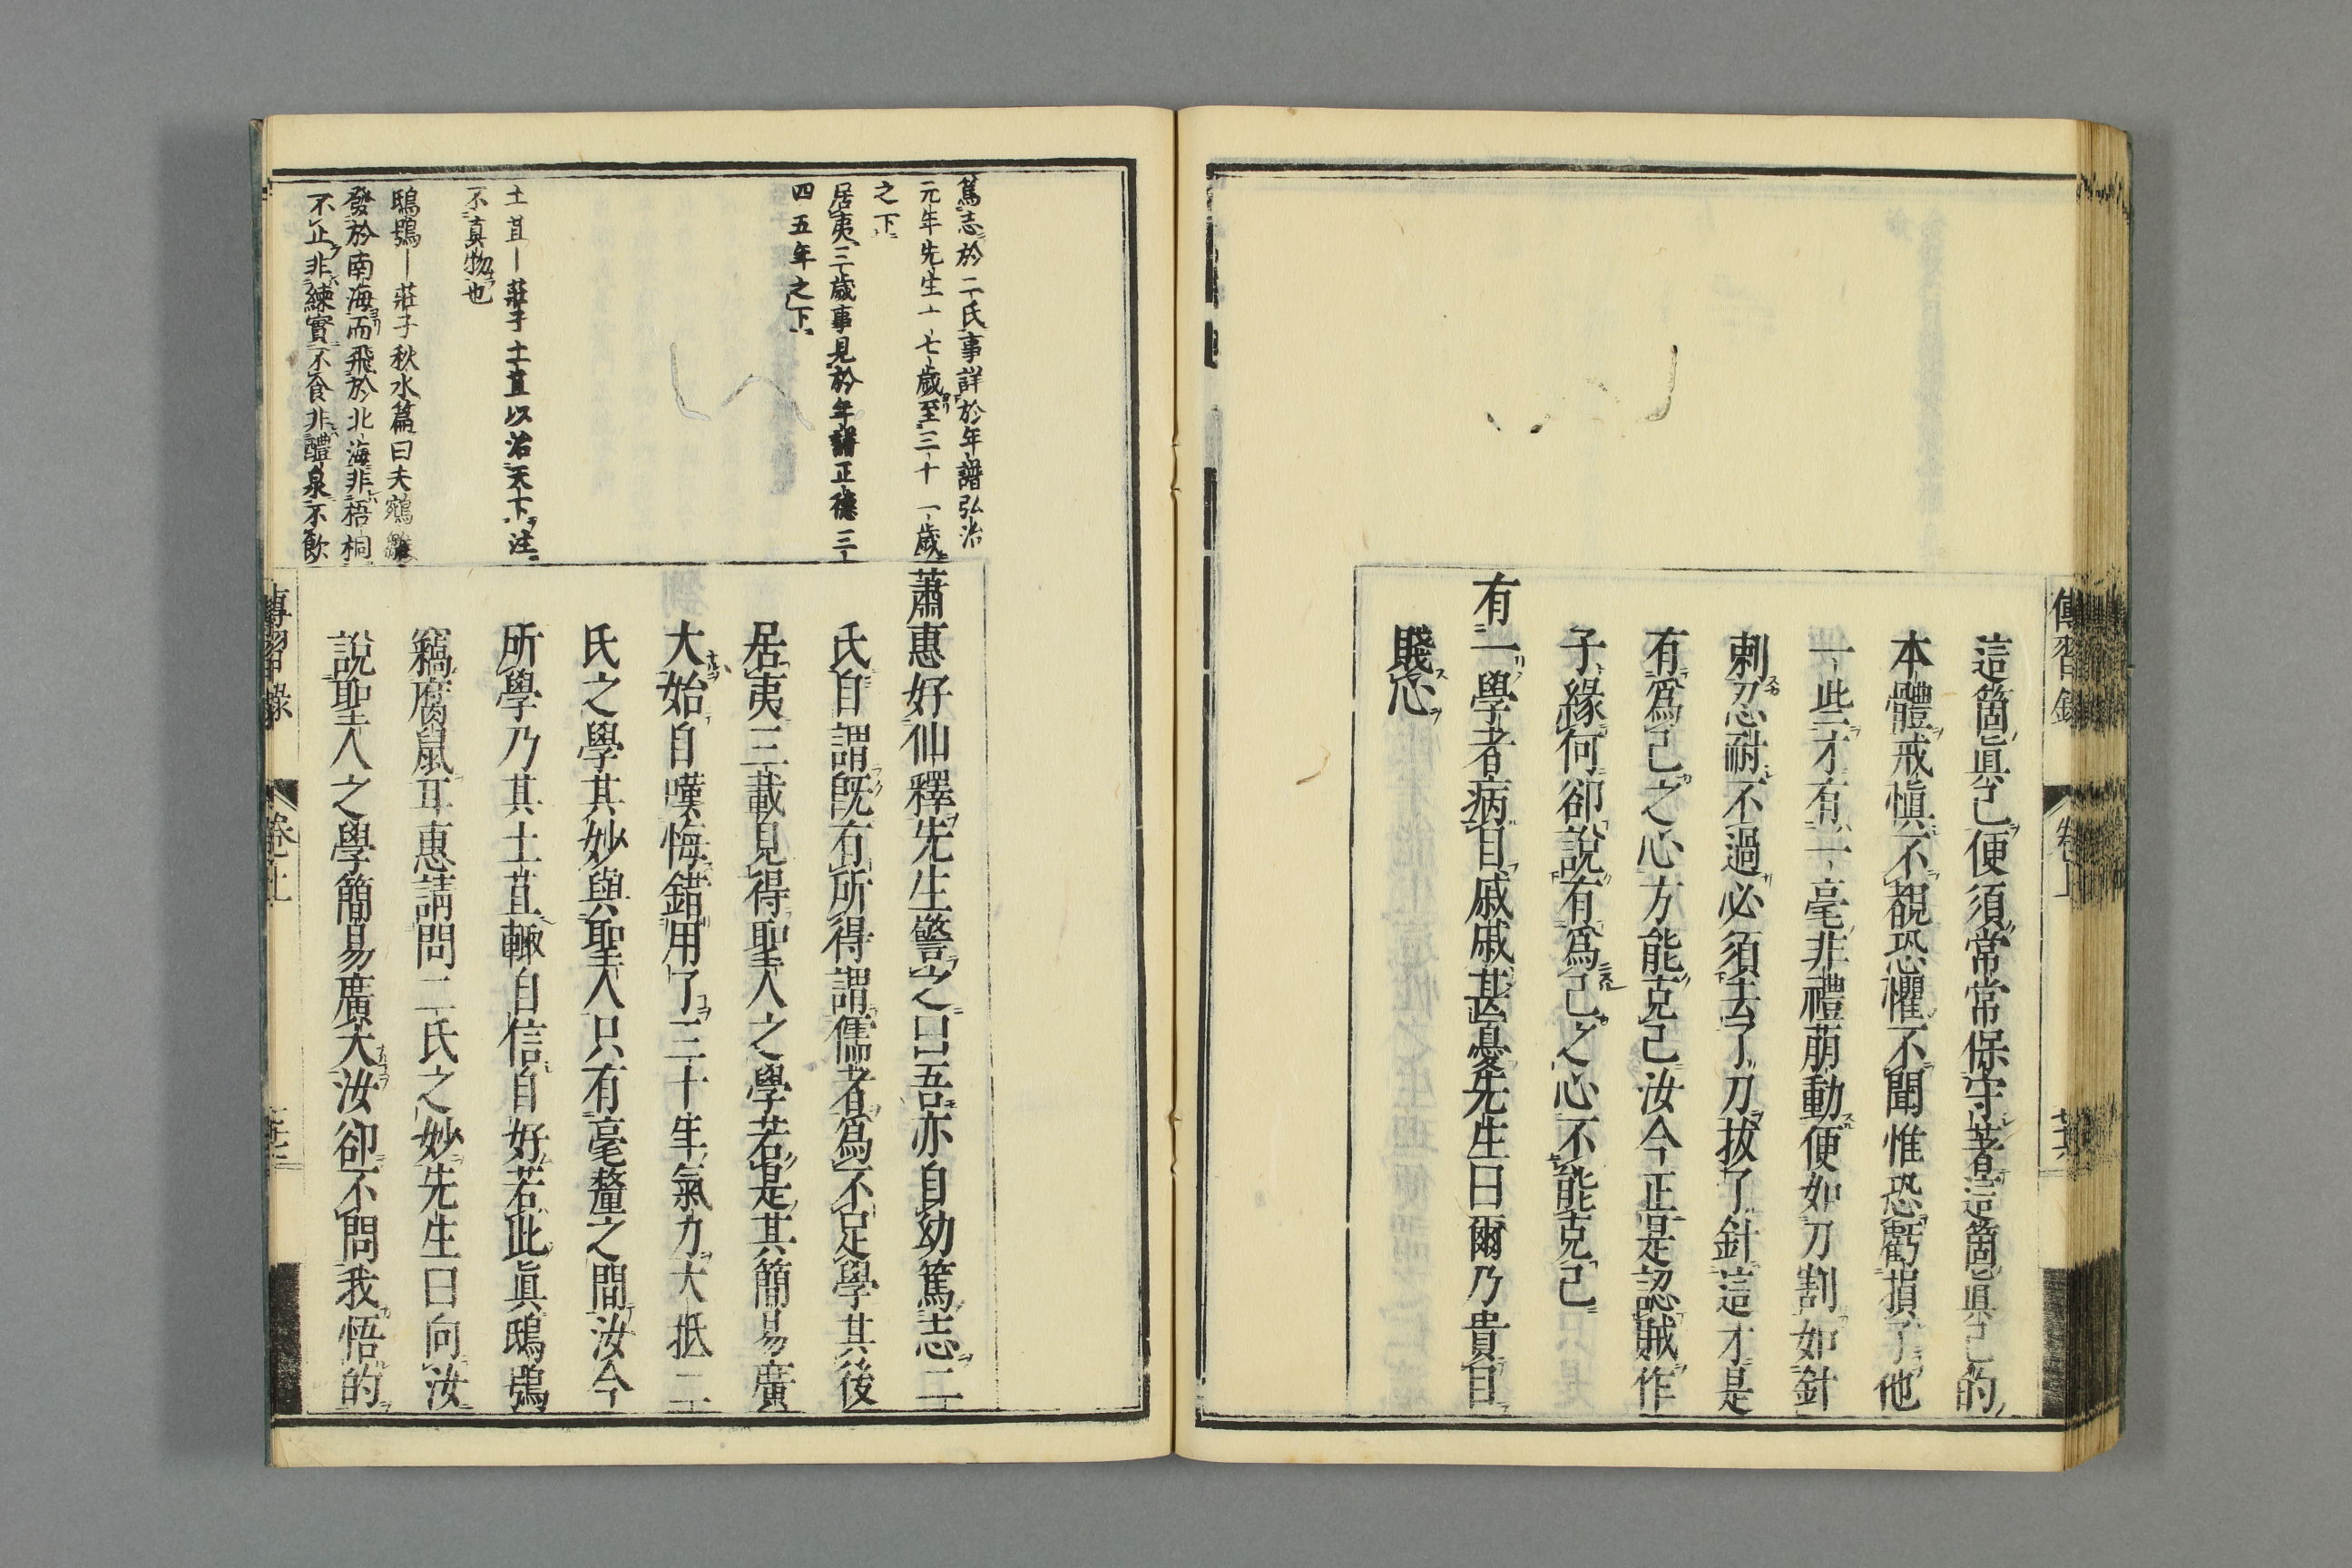 傳習錄 卷上
這箇眞己便須常常保守著這箇眞己的
本體戒愼不覩恐懼不聞惟恐虧損了他
一些才有一毫非禮萌動便如刀割如針
刺忍耐不過必須去了刀拔了針這才是
有爲己之心方能克己汝今正是認賊作
子緣何卻說有爲己之心不能克己
有一學者病目戚戚甚憂先生曰爾乃貴目
賤心
篤志於二氏事詳於年譜弘治
元年先生十七歲至三十一歲
之下
居夷三歲事見於年譜正德三
四五年之下
土苴ー莊子土苴以治天下注
不真物也
鴟鴞ー莊子秋水篇曰夫鵷鶵
發於南海而飛於北海非梧桐
不止非練實不食非醴泉不飲
蕭惠好仙釋先生警之曰吾亦自幼篤志二
氏自謂旣有所得謂儒者爲不足學其後
居夷三載見得聖人之學若是其簡易廣
大始自嘆悔錯用了三十年氣力大抵二
氏之學其妙與聖人只有毫釐之間汝今
所學乃其土苴輙自信自好若此眞鴟鴞
竊腐鼠耳惠請問二氏之妙先生曰向汝
說聖人之學簡易廣大汝卻不問我悟的
傳習錄 卷上